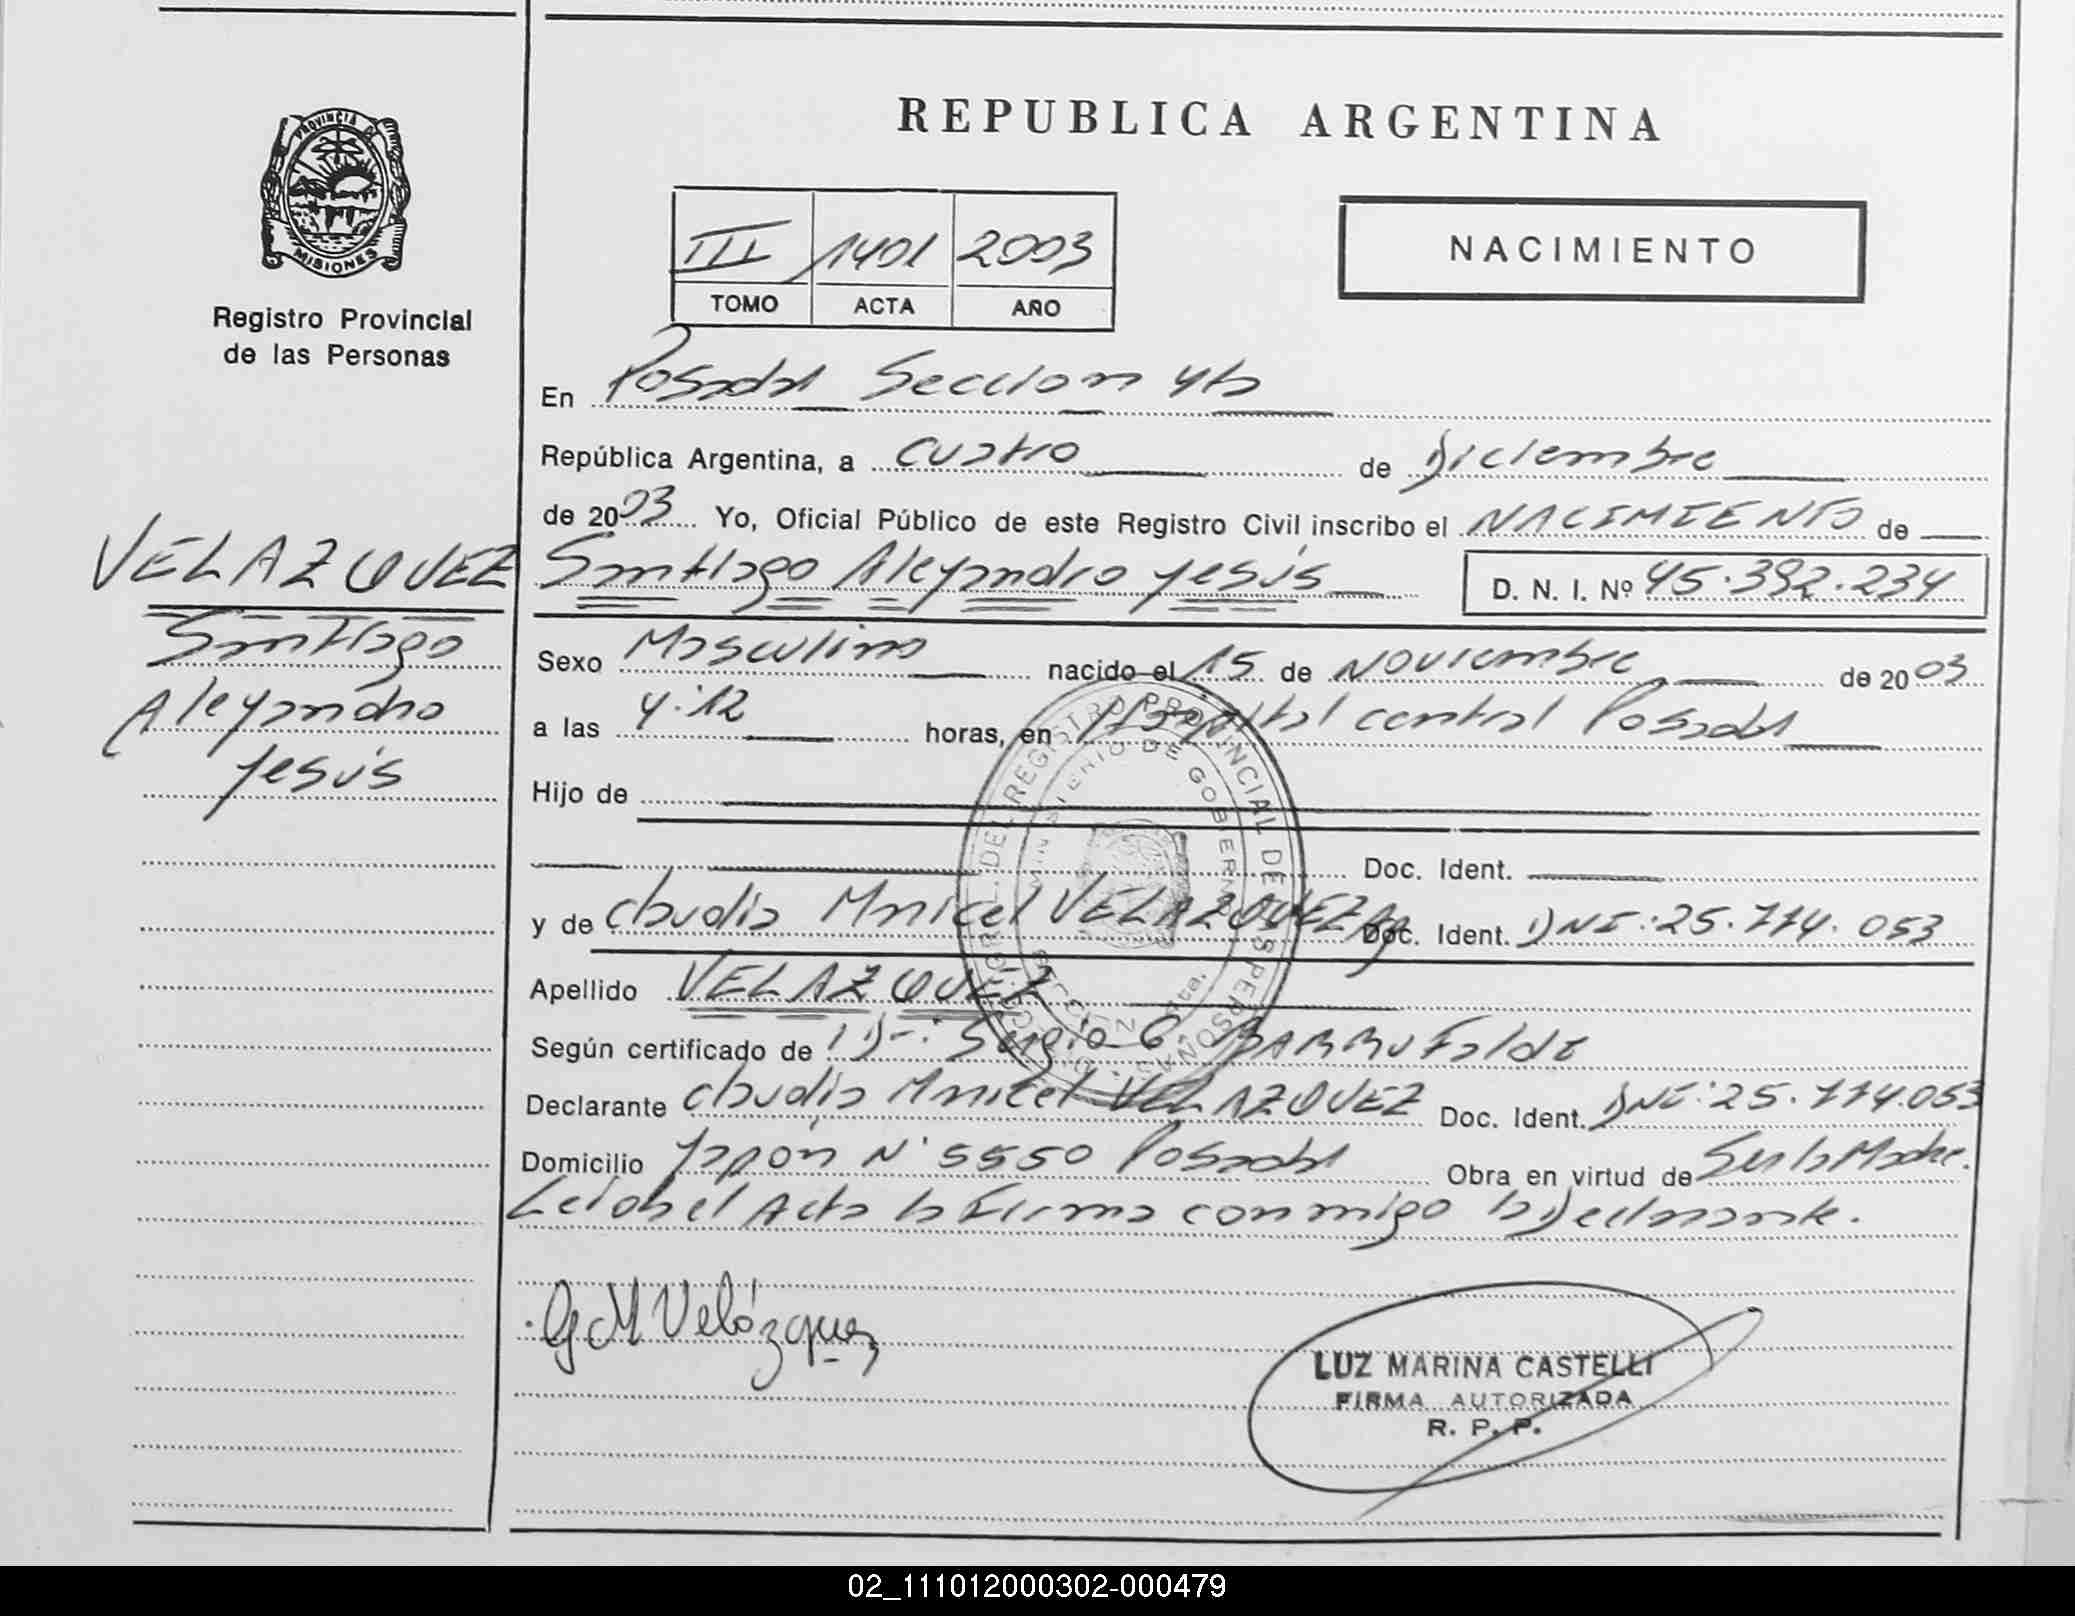 REPUBLICA ARGENTINA
PROVINCIA DE
MISIONES
Registro Provincial
de las Personas
III 1401 2003
TOMO ACTA AÑO
NACIMIENTO
En Posadas Seccion 4ta
República Argentina, a cuatro de Diciembre
de 2003 Yo, Oficial Público de este Registro Civil inscribo el NACIMIENTO de
VELAZQUEZ
Santiago
Alejandro
Jesús
Santiago Alejandro Jesús D. N. I. Nº 45.392.234
Sexo Masculino nacido el 15 de Noviembre de 2003
a las 4:12 horas, en Hospital central Posadas
Hijo de
Doc. Ident.
y de Claudia Maricel VELAZQUEZ Arg Doc. Ident. DNI: 25.774.053
Apellido VELAZQUEZ
Según certificado de Dr: Sergio G. BARRUFALDI
Declarante Claudia Maricel VELAZQUEZ Doc. Ident. DNI: 25.774.053
Domicilio Japón N° 5550 Posadas Obra en virtud de Ser la Madre.
Leída el Acta la Firma conmigo la Declarante.
M Velázquez
LUZ MARINA CASTELLI
FIRMA AUTORIZADA
R. P. P.
REGISTRO PROVINCIAL DE LAS PERSONAS
MINISTERIO DE GOBIERNO
02_111012000302-000479